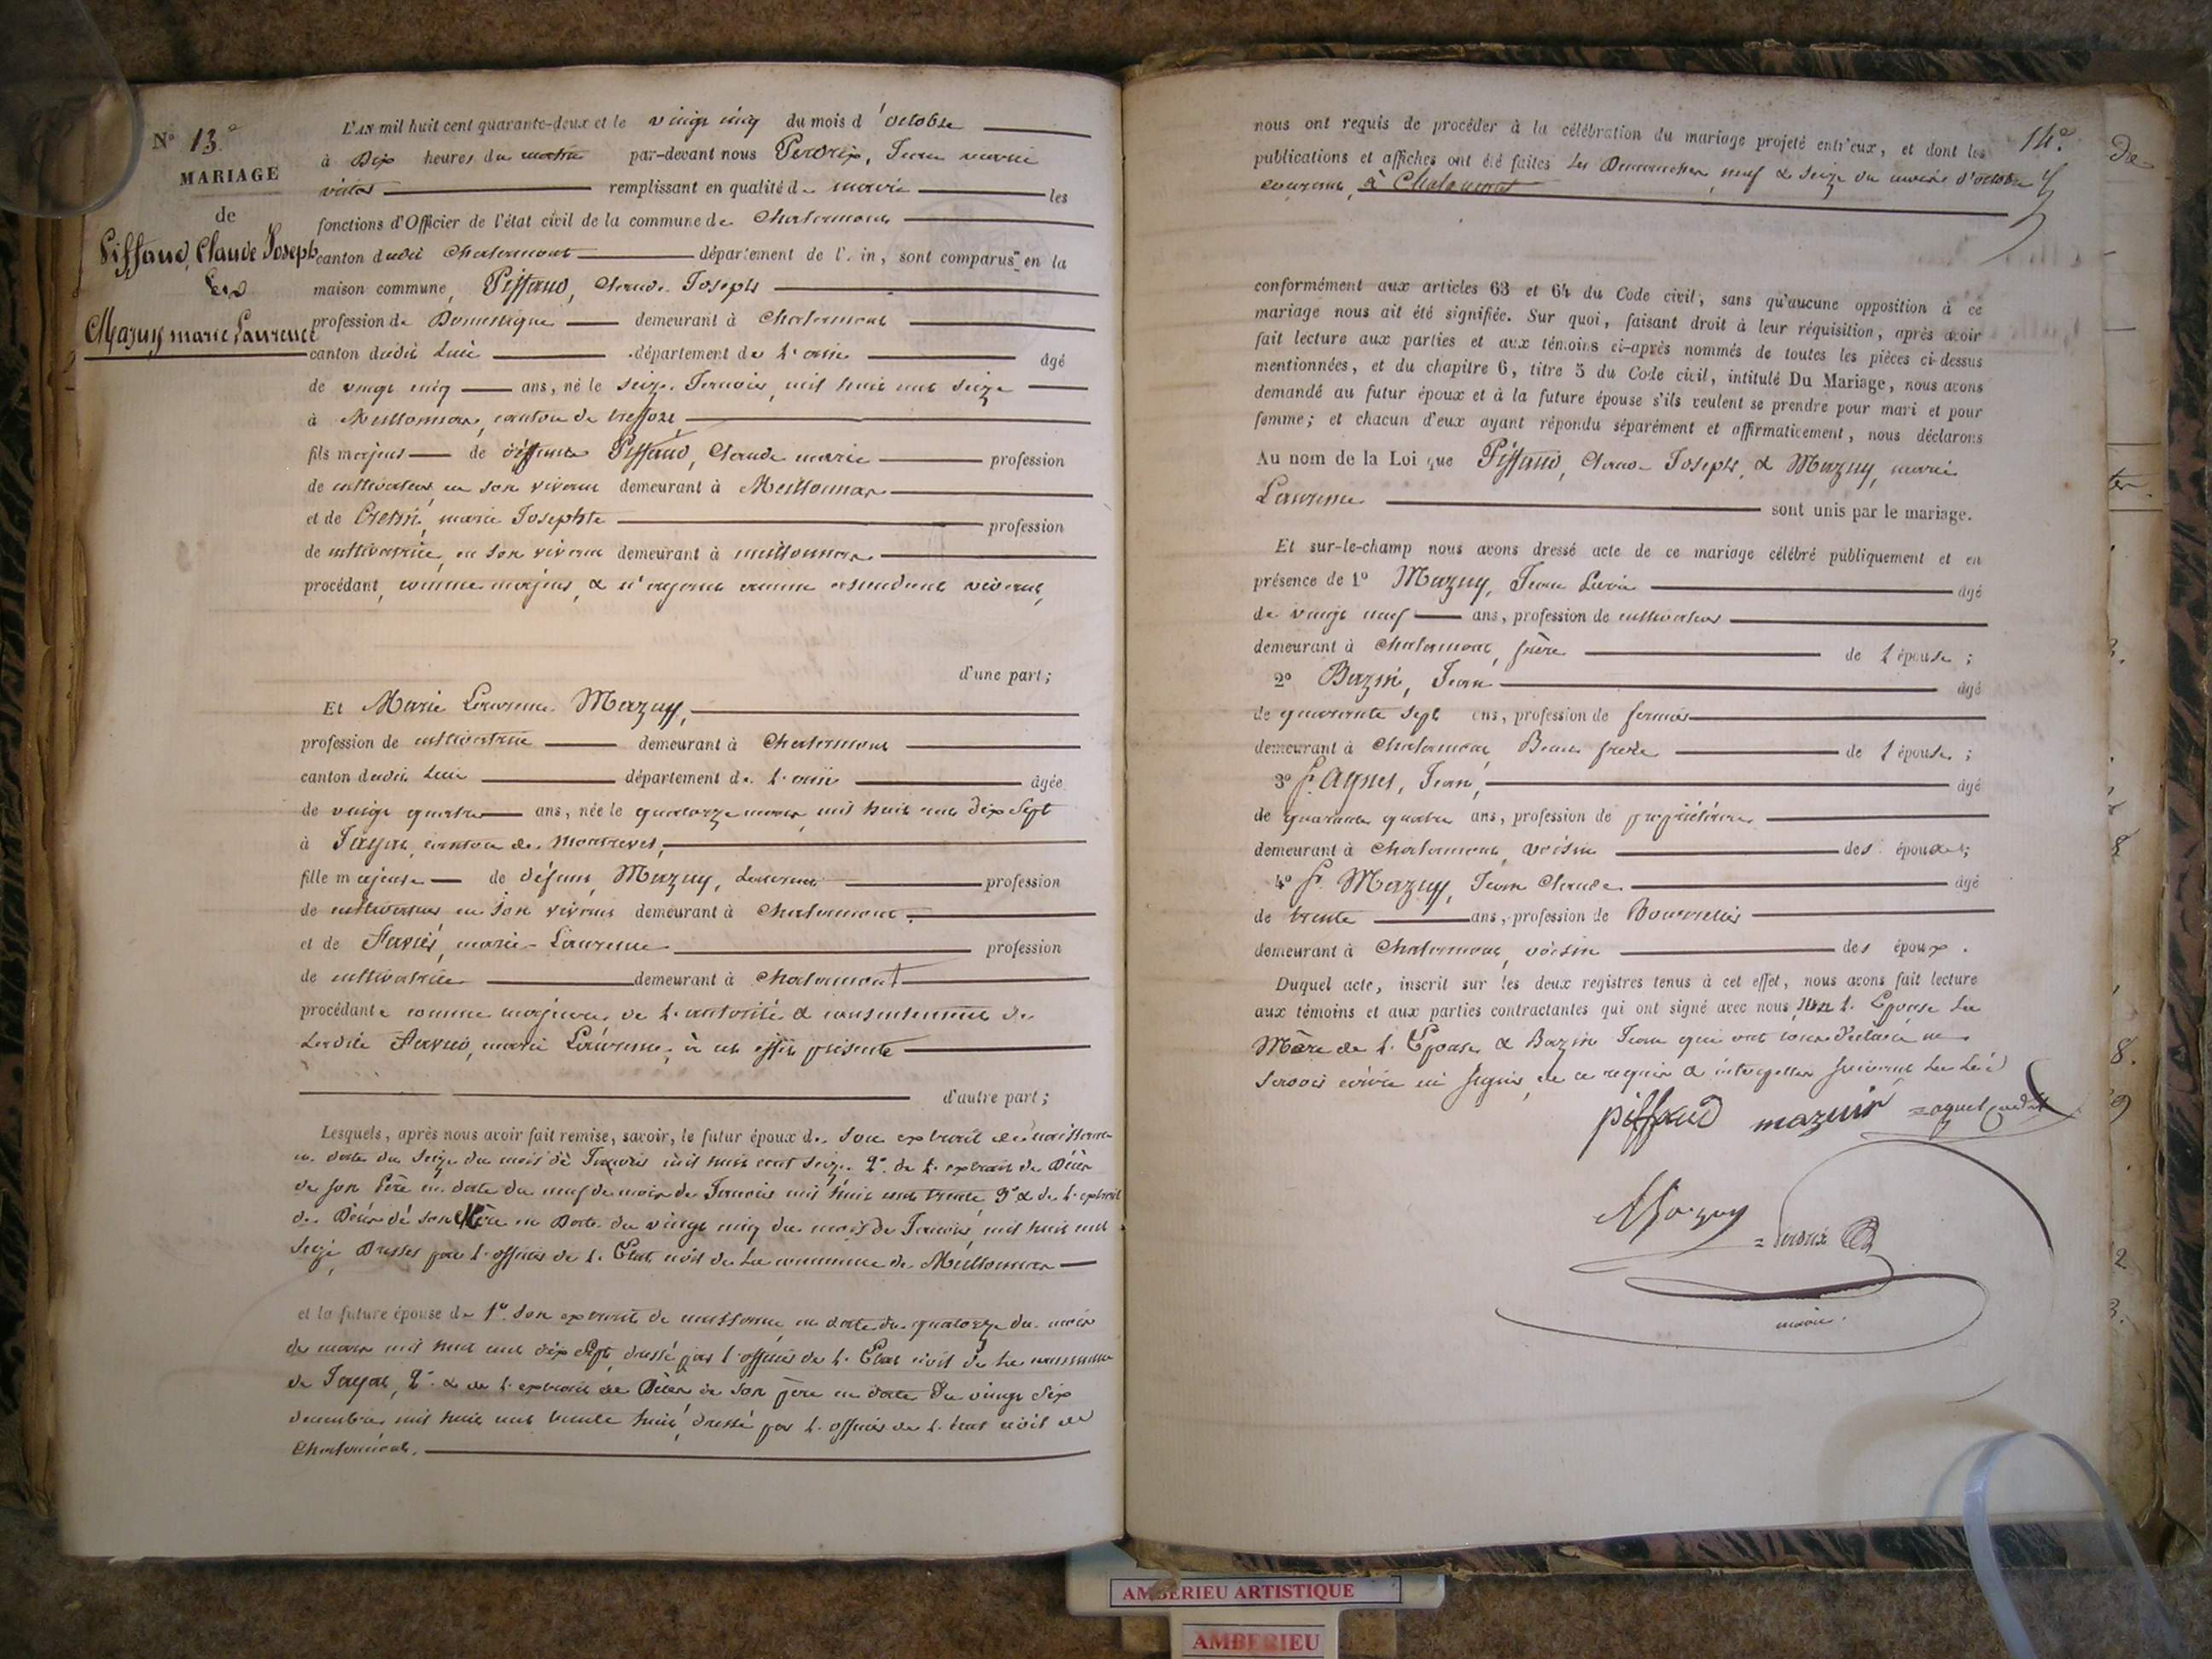 N° 13.e
MARIAGE
de
Piffaud, Claude Joseph
Et
Mazuy marie Laurence
L'AN mil huit cent quarante-deux et le vingt cinq du mois d'octobre
à Dix heures du matin par-devant nous Perdrix, Jean marie
victor remplissant en qualité de maire les
fonctions d'Officier de l'état civil de la commune de Chalamont
canton dudit Chalamont département de l'Ain, sont comparus en la
maison commune, Piffaud, Claude Joseph
profession de Domestique demeurant à Chalamont
canton dudit lieu département de l'ain âgé
de vingt cinq ans, né le seize Janvier, mil huit cent seize
à Meillonnas, canton de treffort,
fils majeur de défunts Piffaud, Claude marie profession
de cultivateur en son vivant demeurant à Meillonnas
et de marie Josephte profession
de cultivatrice, en son vivant demeurant à meillonnas
procédant, comme majeur, & n'ayant aucun ascendant vivant,
d'une part;
Et Marie Laurence Mazuy,
profession de cultivatrice demeurant à Chalamont
canton dudit lieu département de l'ain âgée
de vingt quatre ans, née le quatorze mars, mil huit cent dix sept
à Jayat, canton de Montrevel,
fille majeure de défunt, Mazuy, Laurent profession
de cultivateur en son vivant demeurant à Chalamont
et de marie-Laurence profession
de cultivatrice demeurant à Chalamont
procédante comme majeure de l'autorité & consentement de
Ladite marie Laurence, à cet effet présente
d'autre part;
Lesquels, après nous avoir fait remise, savoir, le futur époux de son extrait de naissance
en date du seize du mois de Janvier mil huit cent seize. 2° de l'extrait de Décès
de son Père en date du neuf du mois de Janvier mil huit cent trente 3° & de l'extrait
de Décès de son Mère en Date du vingt cinq du mois de Janvier, mil huit cent
seize, Dressés par l'officier de l'Etat civil de la commune de Meillonnas
et la future épouse de 1° son extrait de naissance, en date du quatorze du mois
de mars mil huit cent dix sept, dressé par l'officier de l'Etat civil de la commune
de Jayat, 2° & de l'extrait de Décès de son père en date du vingt six
decembre mil huit cent trente huit, dressé par l'officier de l'état civil de
Chalamont.
14.e
nous ont requis de procéder à la célébration du mariage projeté entr'eux, et dont les
publications et affiches ont été faites les Dimanches neuf & seize du mois d'octobre
courant, à Chalamont
conformément aux articles 63 et 64 du Code civil, sans qu'aucune opposition à ce
mariage nous ait été signifiée. Sur quoi, faisant droit à leur réquisition, après avoir
fait lecture aux parties et aux témoins ci-après nommés de toutes les pièces ci-dessus
mentionnées, et du chapitre 6, titre 5 du Code civil, intitulé Du Mariage, nous avons
demandé au futur époux et à la future épouse s'ils veulent se prendre pour mari et pour
femme; et chacun d'eux ayant répondu séparément et affirmativement, nous déclarons
Au nom de la Loi que Piffaud, Claude Joseph, & Mazuy, marie
Laurence sont unis par le mariage.
Et sur-le-champ nous avons dressé acte de ce mariage célébré publiquement et en
présence de 1° Mazuy, Jean Louis âgé
de vingt neuf ans, profession de cultivateur
demeurant à Chalamont, frère de l'épouse;
2° Bazin, Jean âgé
de quarante sept ans, profession de fermier
demeurant à Chalamont, Beau frère de l'épouse;
3° Jean, âgé
de quarante quatre ans, profession de propriétaire
demeurant à Chalamont, voisin des époux;
4° Mazuy, Jean Claude âgé
de trente ans, profession de Bourrelier
demeurant à Chalamont, voisin des époux.
Duquel acte, inscrit sur les deux registres tenus à cet effet, nous avons fait lecture
aux témoins et aux parties contractantes qui ont signé avec nous, non l'Epouse La
Mère de l'Epouse & Bazin Jean qui ont tous Déclaré ne
savoir écrire ni signer, de ce requis & interpellés suivant La Loi
piffaud mazuir
Mazuy
Perdrix
maire.
AMBERIEU ARTISTIQUE
AMBERIEU